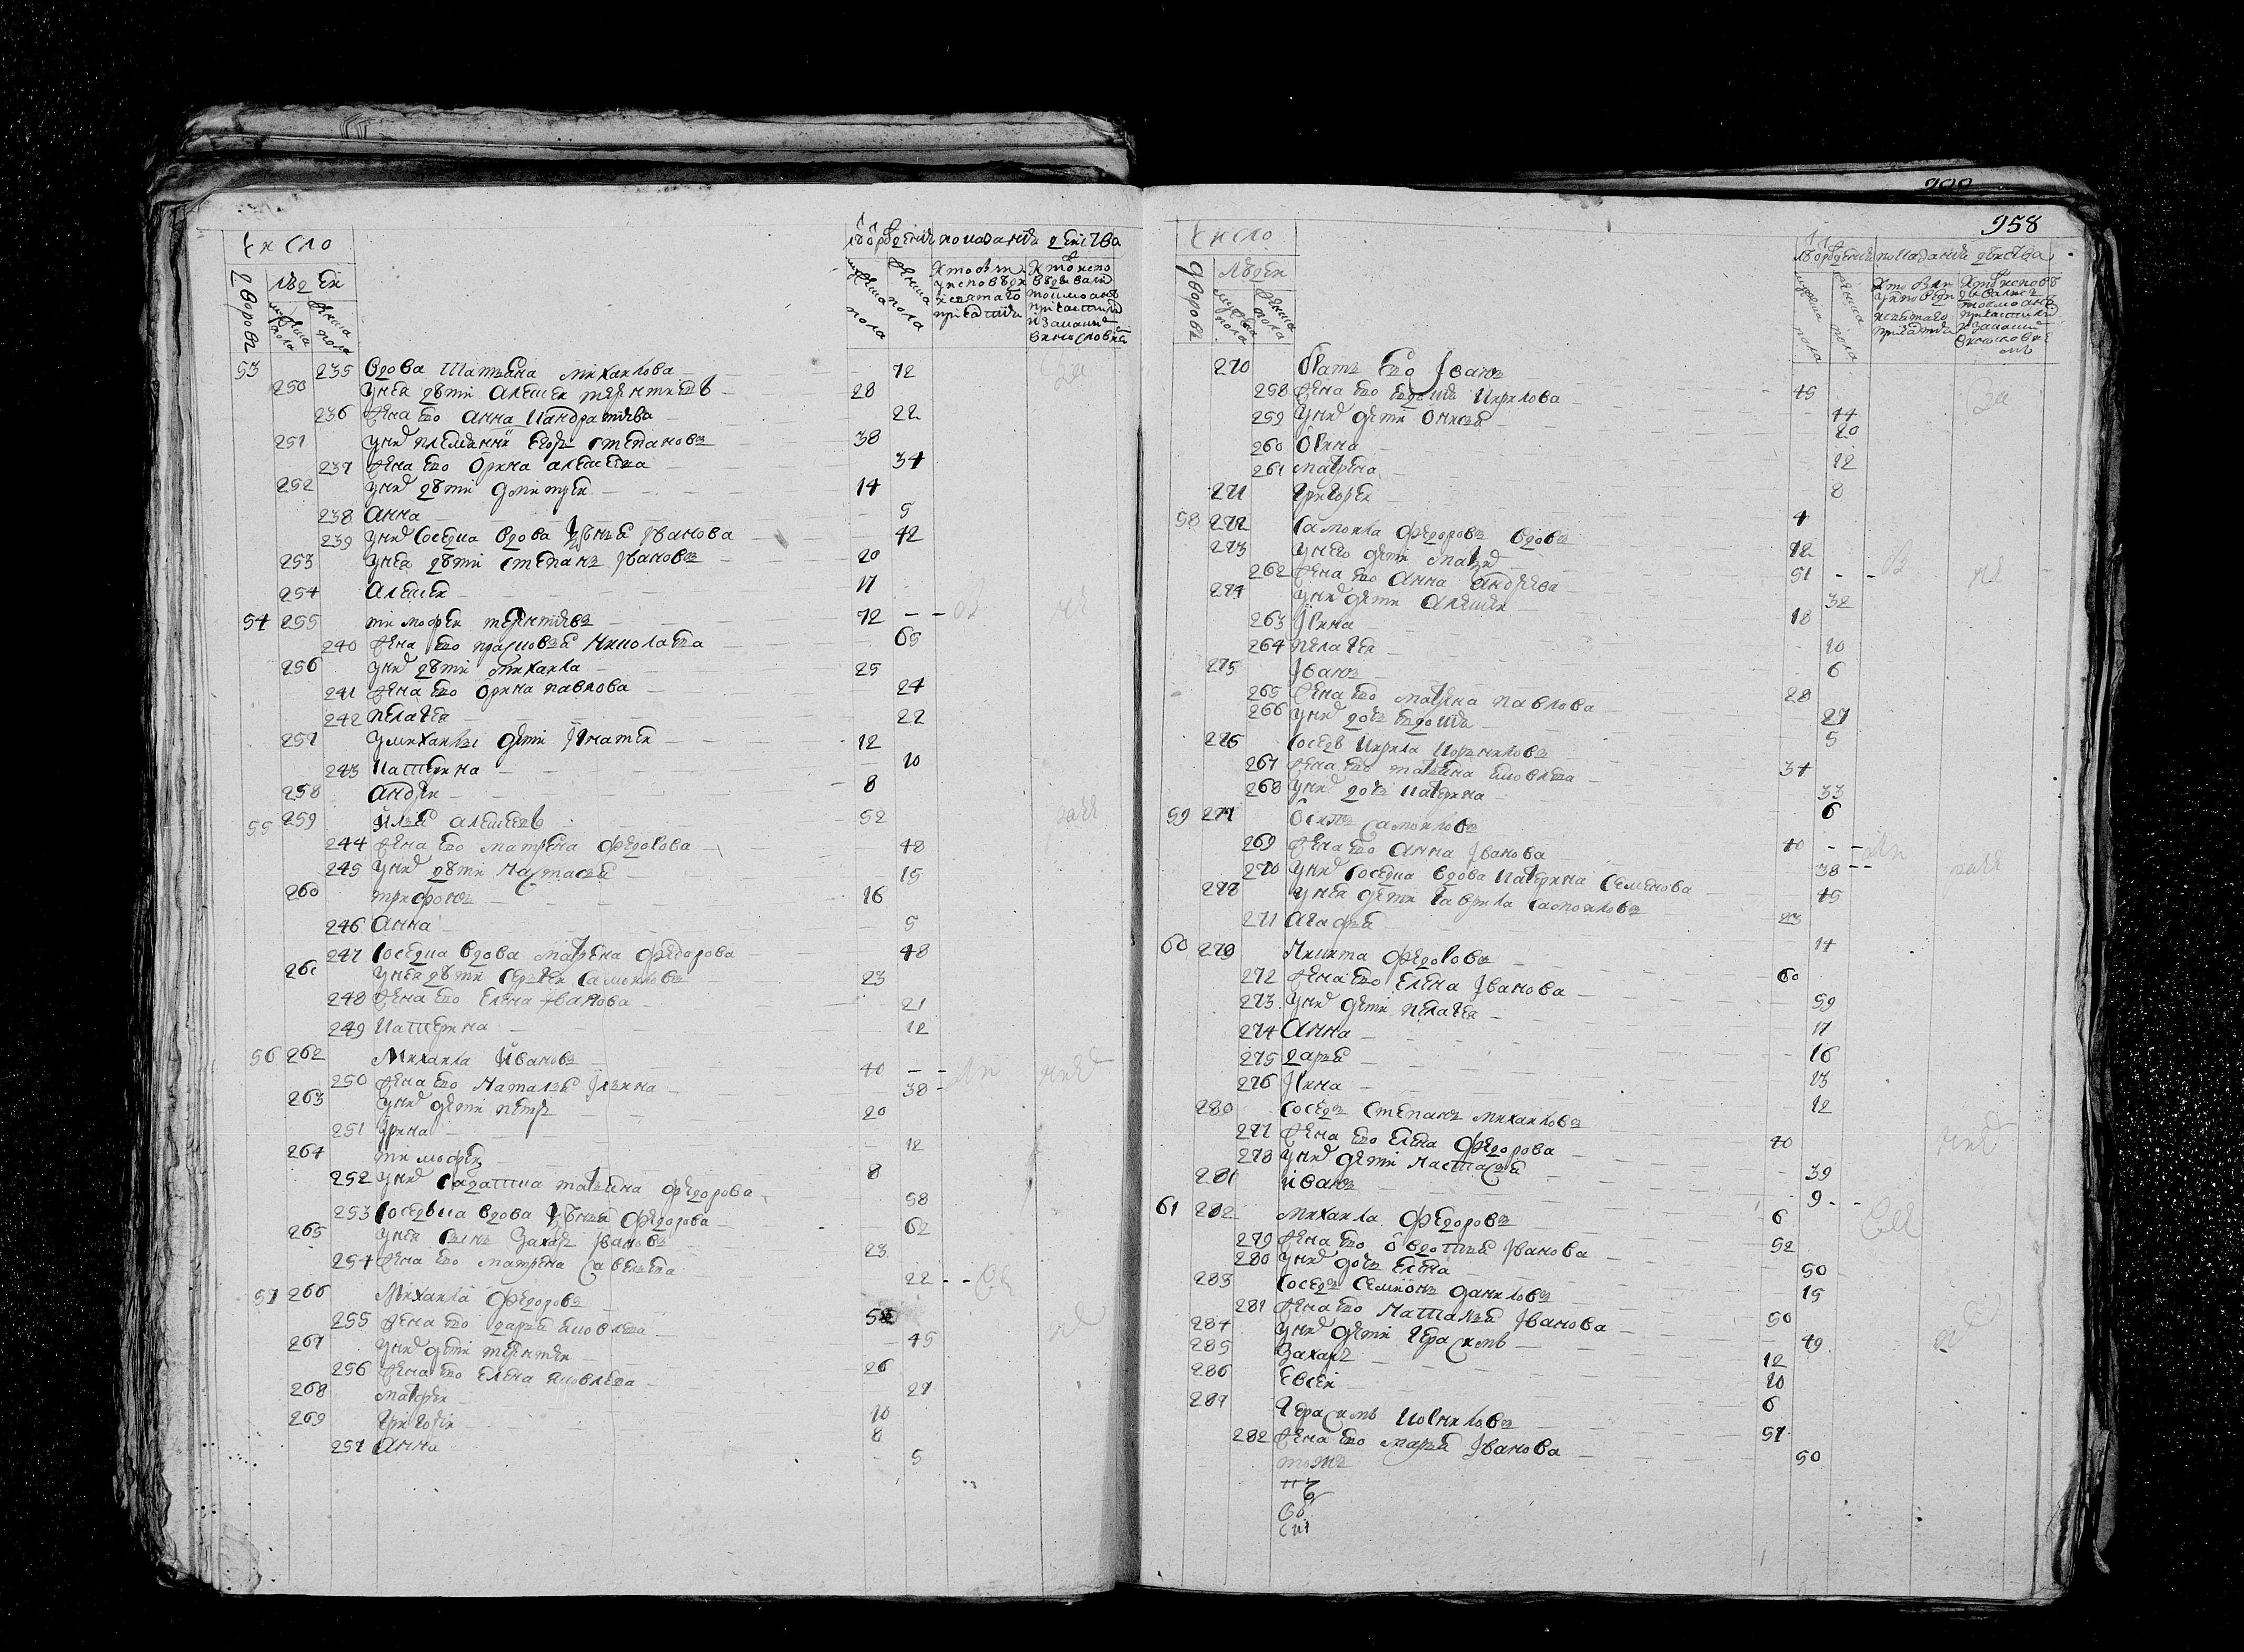 Число
Людей
дворовъ
мужеска пола
женска пола
Лѣта от рождения показания действа
мужеска пола
женска пола
Кто были у исповѣди и святаго причастия
53 235 вдова Татьяна михаилова 72
250 у нея дѣти Алеѯей терентиевъ 28
236 жена ево анна Кандратиева 22
251 у них племянник Егоръ степановъ 38
237 жена ево Орина алеѯѣева 34
252 у них дѣти дмитрей 14
238 анна 5
239 у них соседка вдова Ксенья Iванова 42
253 у нея дѣти степанъ Iвановъ 20
254 Алеѯей 17
54 255 тимофей терентиевъ 72
240 жена ево прасковья Николаева 65
256 у них дѣти михаила 25
241 жена ево Орина павлова 24
242 пелагея 22
257 у михаилы дѣти Iгнатей 12
243 Катерина 10
258 андрей 8
55 259 илья алеѯеевъ 52
244 жена ево матрена федорова 48
245 у них дѣти Настасья 15
260 трифонъ 16
246 Анна 5
247 соседка вдова матрена федорова 48
261 у нея дѣти сергей самоиловъ 23
248 жена ево Елена Iванова 21
249 Катерина 12
56 262 Михаила Ивановъ 40
250 жена ево Наталья Iльина 38
263 у них дѣти петръ 20
251 Iрина 12
264 тимофей 8
252 у них салдатка татьяна федорова 58
253 соседка вдова Ксенья федорова 62
265 у нея сынъ Захаръ Iвановъ 23
254 жена ево матрена Савельева 22
57 266 Михаила федоровъ 58
255 жена ево дарья яковлева 45
267 у них дѣти терентей 26
256 жена ево Елена яковлева 27
268 матфей 10
269 григорей 8
257 Анна 5
958
Число
Людей
дворовъ
мужеска пола
женска пола
270 братъ Ево Iванъ 45
258 жена ево евдокия Кирилова 44
259 у них дѣти Онисья 20
260 Орина 12
261 матрена 8
271 григорей 4
58 272 самоила федоровъ вдовъ 72
273 у него дѣти матвей 51
262 жена ево анна андреева 32
274 у них дѣти Алеѯей 18
263 Iрина 10
264 пелагея 6
275 Iванъ 28
265 жена ево матрена павлова 27
266 у них дочь евдокия 5
276 соседъ Кирила Корниловъ 34
267 жена ево татьяна яковлева 33
268 у них дочь Катерина 6
59 277 Осипъ самоиловъ 40
269 жена ево анна Iванова 38
270 у них соседка вдова Катерина Семенова 45
278 у нея дѣти гаврила самоиловъ 23
271 Агафья 14
60 279 Никита федоровъ 60
272 жена ево Елена Iванова 59
273 у них дѣти пелагея 17
274 Анна 16
275 дарья 13
276 Iрина 12
280 соседъ степанъ михаиловъ 40
277 жена ево Елена федорова 39
278 у них дѣти настасья 9
281 иванъ 6
61 282 михаила федоровъ 52
279 жена ево Овдотья Iванова 50
280 у них дочь Елена 15
283 соседъ семионъ даниловъ 50
281 жена ево Наталья Iванова 49
284 у них дѣти герасимъ 12
285 Захаръ 10
286 Евсей 6
287 герасимъ Корниловъ 51
282 жена ево марья Iванова 50